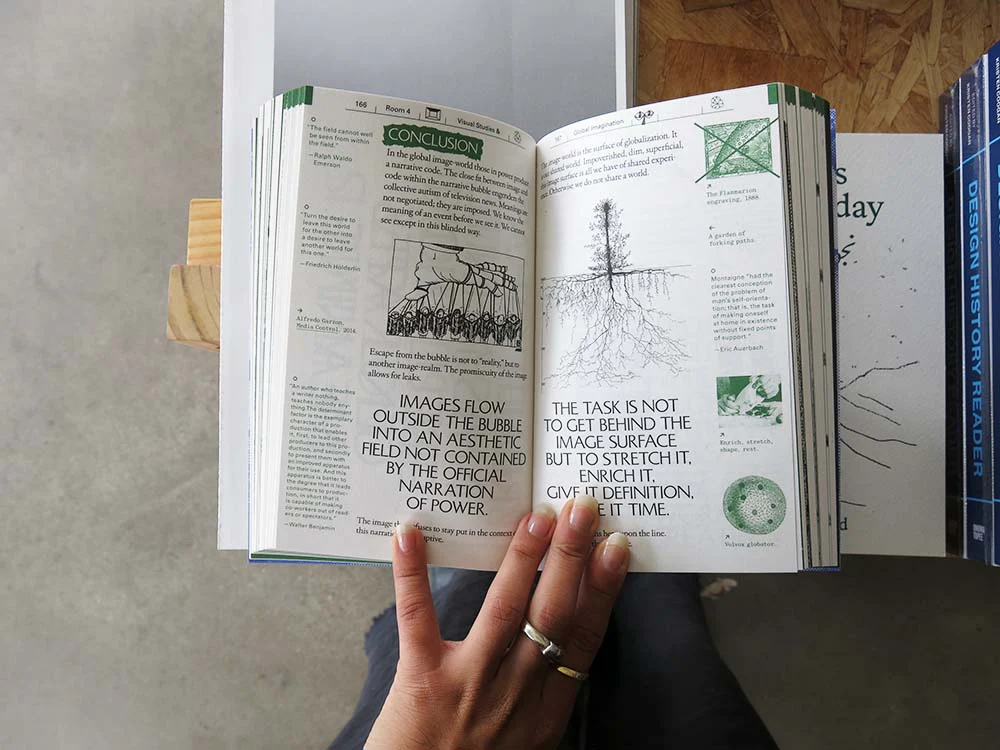 166 | Room 4 | Visual Studies &
"The field cannot well
be seen from within
the field."
—Ralph Waldo
Emerson
"Turn the desire to
leave this world
for the other into
a desire to leave
another world for
this one."
—Friedrich Hölderlin
Alfredo Garzon,
Media Control, 2014.
"An author who teaches
a writer nothing,
teaches nobody any-
thing. The determinant
factor is the exemplary
character of a pro-
duction that enables
it, first, to lead other
producers to this pro-
duction, and secondly
to present them with
an improved apparatus
for their use. And this
apparatus is better to
the degree that it leads
consumers to produc-
tion, in short that it
is capable of making
co-workers out of read-
ers or spectators."
—Walter Benjamin
CONCLUSION
In the global image-world those in power produce
a narrative code. The close fit between image and
code within the narrative bubble engenders the
collective autism of television news. Meanings are
not negotiated; they are imposed. We know the
meaning of an event before we see it. We cannot
see except in this blinded way.
Escape from the bubble is not to "reality," but to
another image-realm. The promiscuity of the image
allows for leaks.
IMAGES FLOW
OUTSIDE THE BUBBLE
INTO AN AESTHETIC
FIELD NOT CONTAINED
BY THE OFFICIAL
NARRATION
OF POWER.
The image refuses to stay put in the context
this narration
167 | Global Imagination
The image-world is the surface of globalization. It
is our shared world. Impoverished, dim, superficial,
this image surface is all we have of shared experi-
ence. Otherwise we do not share a world.
THE TASK IS NOT
TO GET BEHIND THE
IMAGE SURFACE
BUT TO STRETCH IT,
ENRICH IT,
GIVE IT DEFINITION,
IT TIME.
upon the line.
The Flammarion
engraving, 1888.
A garden of
forking paths.
Montaigne "had the
clearest conception
of the problem of
man's self-orienta-
tion; that is, the task
of making oneself
at home in existence
without fixed points
of support."
—Eric Auerbach
Enrich, stretch,
shape, rest.
Volvox globator.
day
DESIGN HISTORY READER
KRISTEN COOGAN